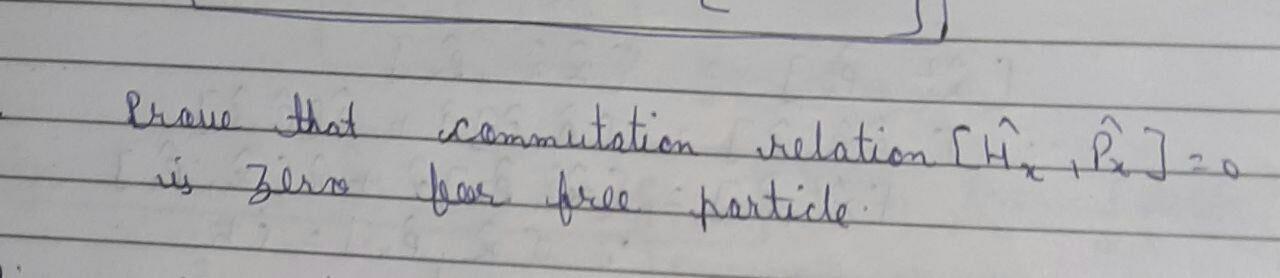 Prove that commutation relation [Ĥₓ, P̂ₓ] = 0
is zero for free particle.